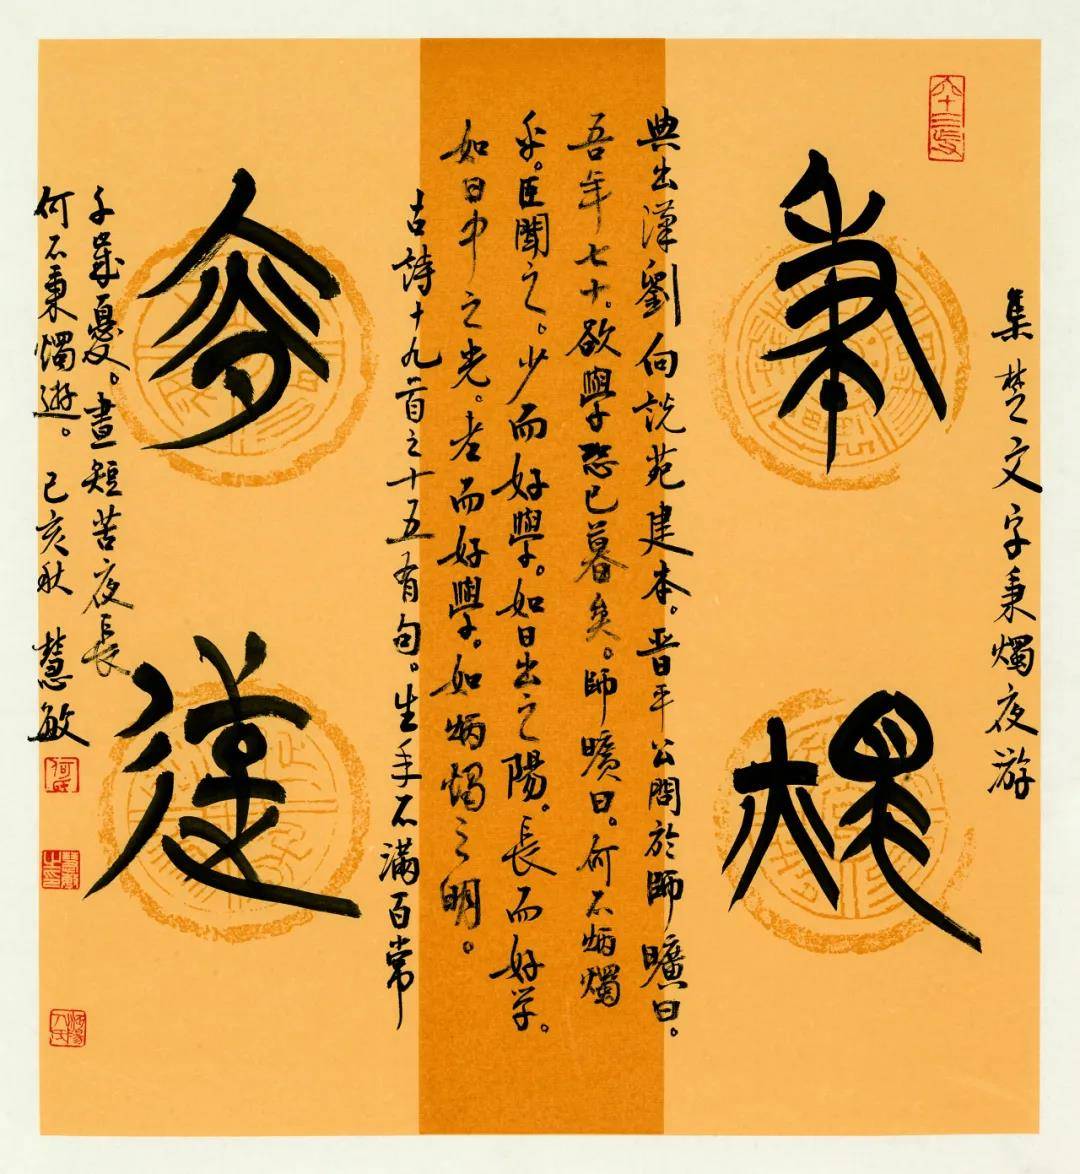 集楚文字秉燭夜游
秉燭
夜遊
典出漢劉向説苑建本。晉平公問於師曠曰。
吾年七十。欲學恐已暮矣。師曠曰。何不炳燭
乎。臣聞之。少而好學。如日出之陽。長而好学。
如日中之光。老而好學。如炳燭之明。
古詩十九首之十五有句。生年不滿百常
千歲憂。晝短苦夜長
何不秉燭遊。己亥秋 慧敏